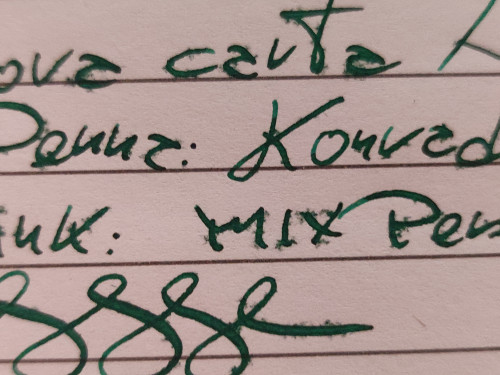 ova carta
Penna: Konrad
ink: mix Pers